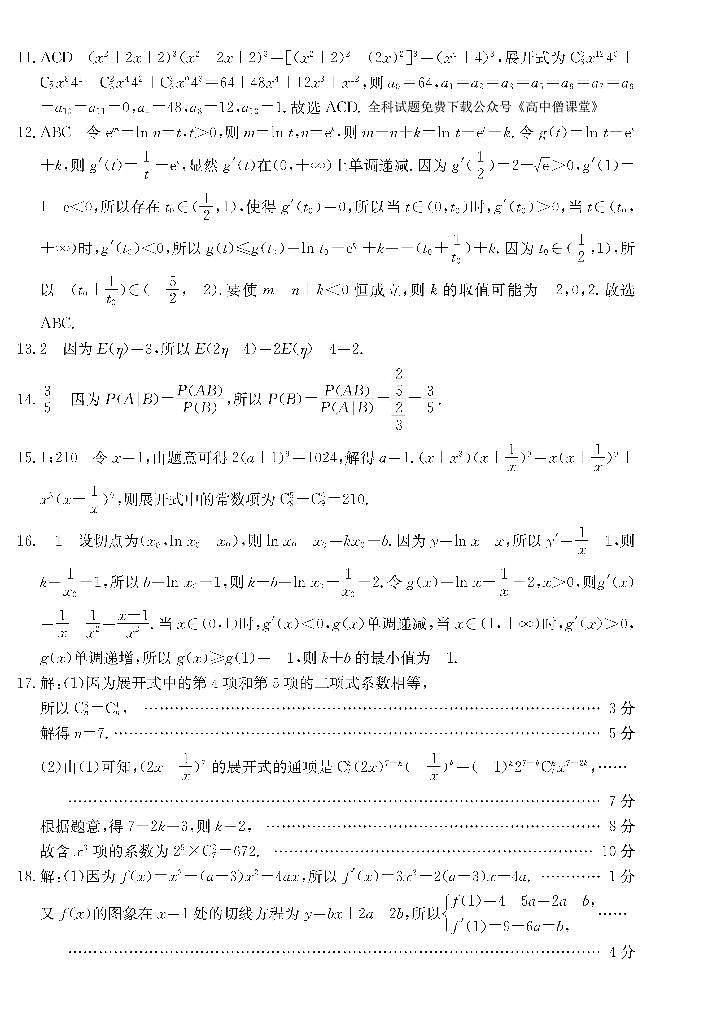 11. ACD (x²+2x+2)³(x²−2x+2)³=[(x²+2)²−(2x)²]³=(x⁴+4)³,展开式为 C₃⁰x¹²4⁰+
C₃¹x⁸4¹+C₃²x⁴4²+C₃³x⁰4³=64+48x⁴+12x⁸+x¹²,则 a₀=64,a₁=a₂=a₃=a₅=a₆=a₇=a₉
=a₁₀=a₁₁=0,a₄=48,a₈=12,a₁₂=1.故选 ACD. 全科试题免费下载公众号《高中僧课堂》
12. ABC 令 eᵐ=ln n=t,t>0,则 m=ln t,n=eᵗ,则 m−n+k=ln t−eᵗ+k.令 g(t)=ln t−eᵗ
+k,则 g′(t)=1/t−eᵗ,显然 g′(t)在(0,+∞)上单调递减.因为 g′(1/2)=2−√e>0,g′(1)=
1−e<0,所以存在 t₀∈(1/2,1),使得 g′(t₀)=0,所以当 t∈(0,t₀)时,g′(t₀)>0,当 t∈(t₀,
+∞)时,g′(t₀)<0,所以 g(t)≤g(t₀)=ln t₀−eᵗ⁰+k=−(t₀+1/t₀)+k.因为 t₀∈(1/2,1),所
以−(t₀+1/t₀)∈(−5/2,−2).要使 m−n+k<0 恒成立,则 k 的取值可能为−2,0,2.故选
ABC.
13. 2 因为 E(η)=3,所以 E(2η−4)=2E(η)−4=2.
14. 3/5 因为 P(A|B)=P(AB)/P(B),所以 P(B)=P(AB)/P(A|B)=(2/5)/(2/3)=3/5.
15. 1;210 令 x=1,由题意可得 2(a+1)⁹=1024,解得 a=1.(x+x²)(x+1/x)⁹=x(x+1/x)⁹+
x²(x+1/x)⁹,则展开式中的常数项为
16. −1 设切点为(x₀,ln x₀−x₀),则 ln x₀−x₀=kx₀+b.因为 y=ln x−x,所以 y′=1/x−1,则
k=1/x₀−1,所以 b=ln x₀−1,则 k+b=ln x₀+1/x₀−2.令 g(x)=ln x+1/x−2,x>0,则g′(x)
=1/x−1/x²=(x−1)/x².当 x∈(0,1)时,g′(x)<0,g(x)单调递减,当 x∈(1,+∞)时,g′(x)>0,
g(x)单调递增,所以 g(x)≥g(1)=−1,则 k+b 的最小值为−1.
17. 解:(1)因为展开式中的第 4 项和第 5 项的二项式系数相等,
所以 Cₙ³=Cₙ⁴, …… 3 分
解得 n=7. …… 5 分
(2)由(1)可知,(2x−1/x)⁷ 的展开式的通项是 C₇ᵏ(2x)⁷⁻ᵏ(−1/x)ᵏ=(−1)ᵏ2⁷⁻ᵏC₇ᵏx⁷⁻²ᵏ,……
…… 7 分
根据题意,得 7−2k=3,则 k=2, …… 8 分
故含 x³ 项的系数为 2⁵×C₇²=672. …… 10 分
18. 解:(1)因为 f(x)=x³−(a+3)x²+4ax,所以 f′(x)=3x²−2(a+3)x+4a. …… 1 分
又 f(x)的图象在 x=1 处的切线方程为 y=bx+2a−2b,所以{f(1)=4−5a=2a−b, f′(1)=9−6a=b,……
…… 4 分